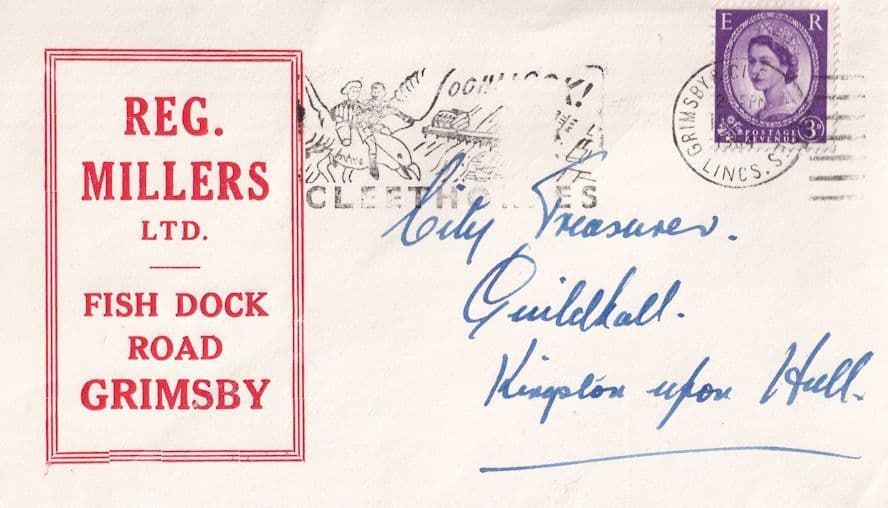 REG.
MILLERS
LTD.
FISH DOCK
ROAD
GRIMSBY
LOOK!
CLEETHORPES
E R
GRIMSBY
LINCS. S.
POSTAGE
REVENUE
3D
City Treasurer.
Guildhall.
Kingston upon Hull.